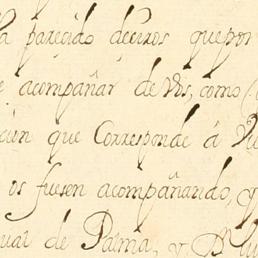 ha parecido deciros que por
acompañar de Vos, como
que Corresponde á
os fuesen acompañando, y
de Palma, y